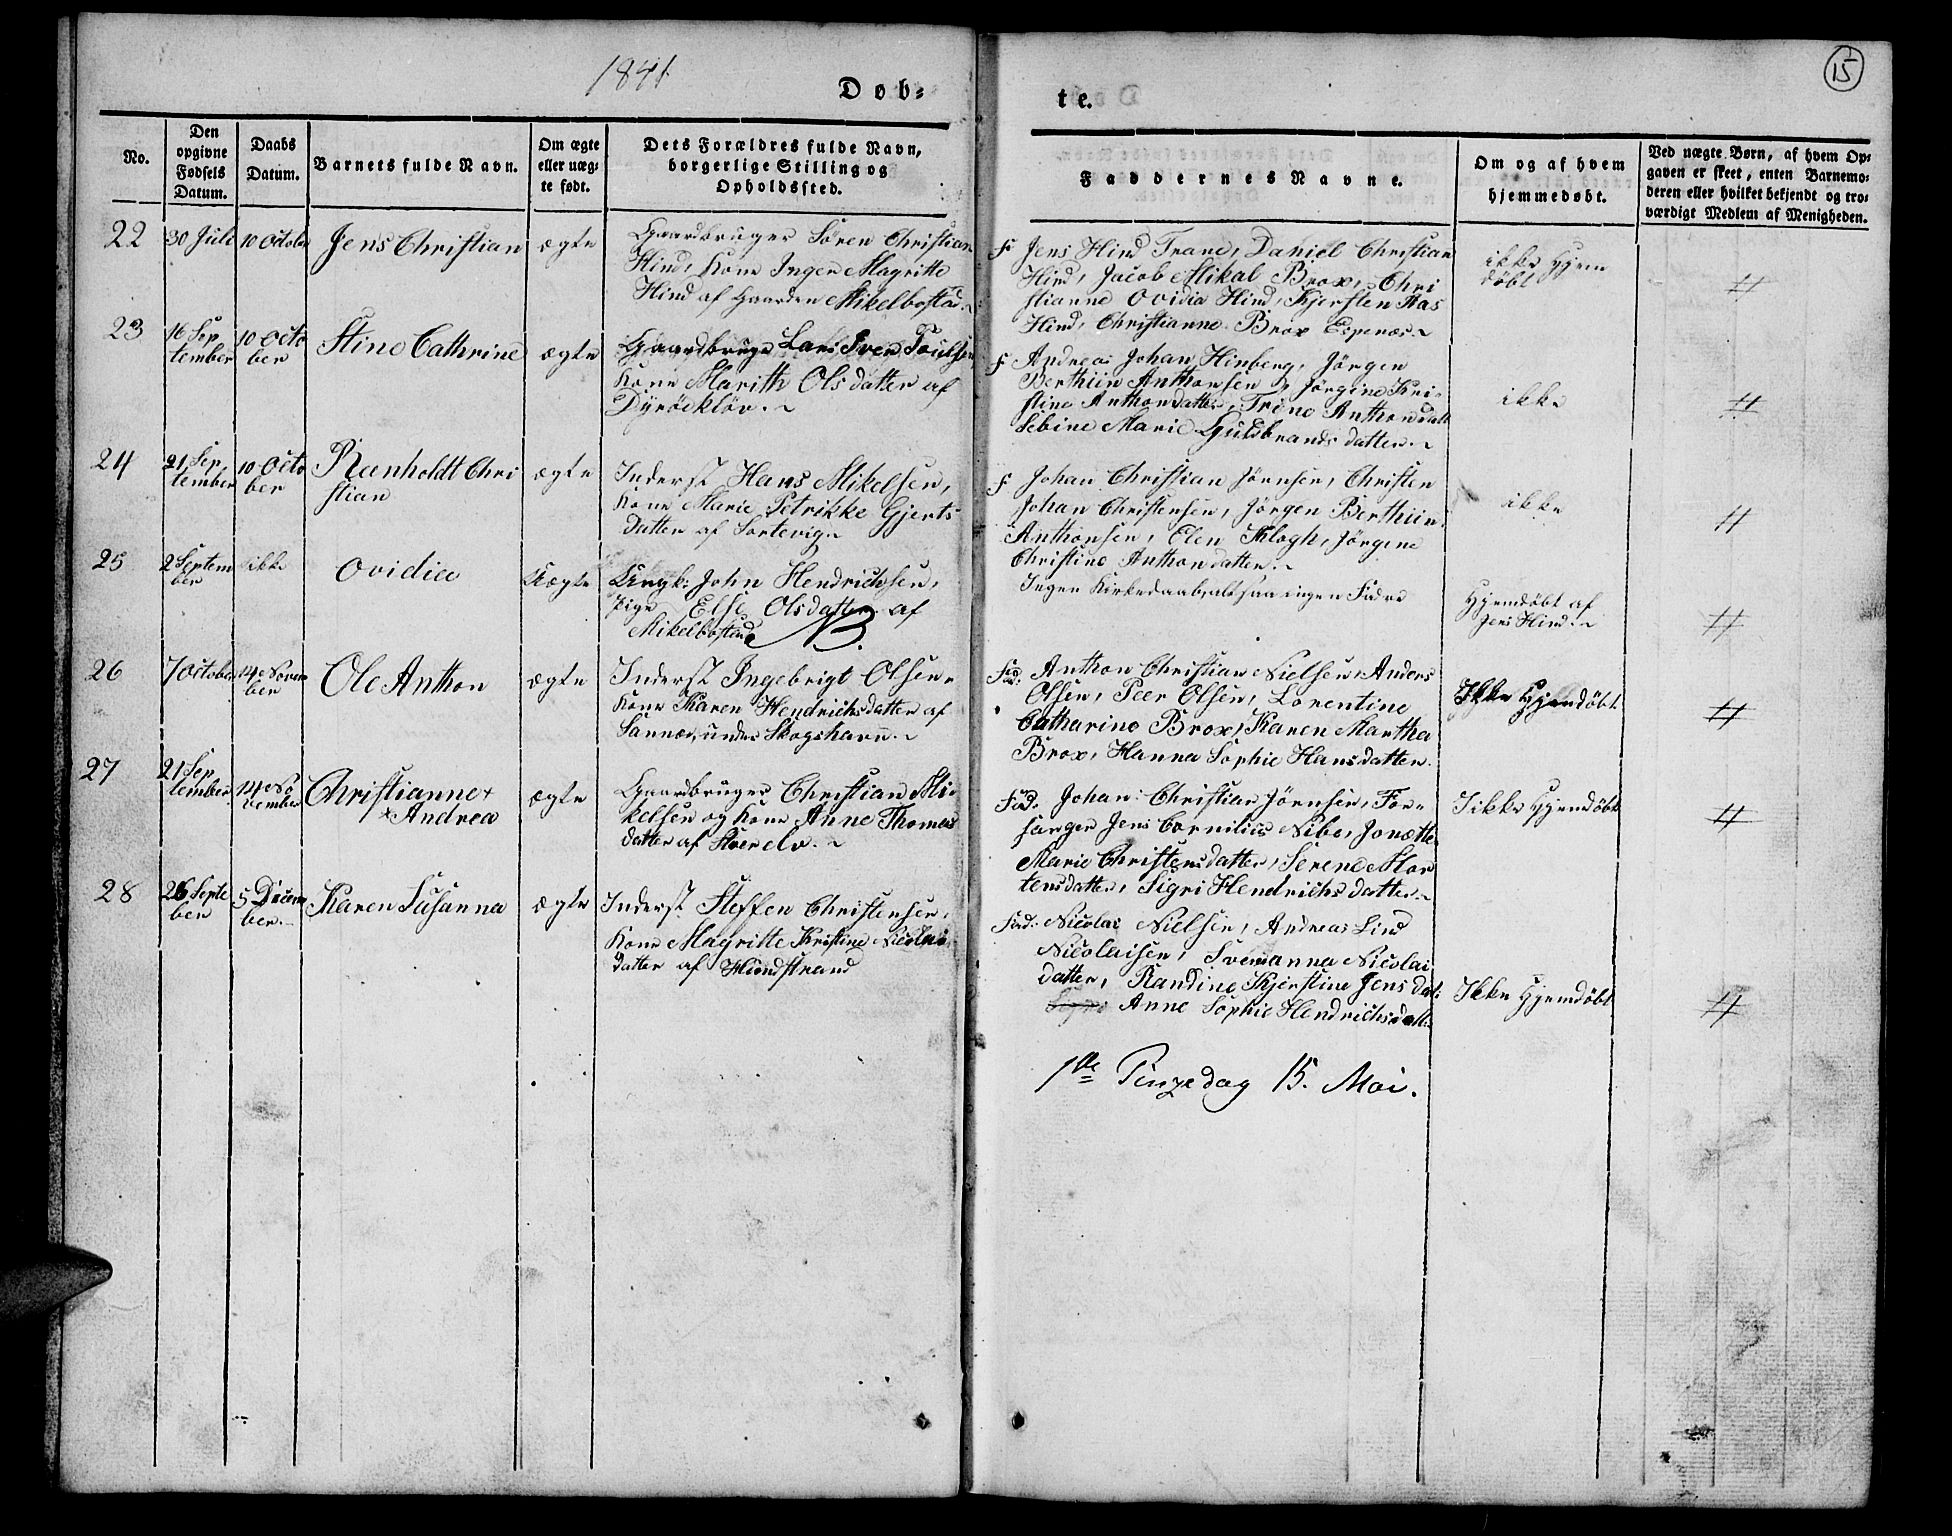 1841.
Døb-
te.
15
No.
Den opgivne Fødsels Datum.
Daabs Datum.
Barnets fulde Navn.
Om ægte eller uæg-te født.
Dets Forældres fulde Navn, borgerlige Stilling og Opholdssted.
Faddernes Navne.
Om og af hvem hjemmedøbt.
Ved uægte Børn, af hvem Op-
gaven er skeet, enten Barnemo-
deren eller hvilket bekjendt og tro-
værdigt Medlem af Menigheden.
22 30 Juli 10 October Jens Christian ægte
Gaardbruger Sören Christian
Hind, Kone Inger Magritte
Hind af Gaarden Mikelbostad.
F Jens Hind Trane, Daniel Christian
Hind, Jacob Mikal Brox, Chri
stianne Ovidia Hind, Kjersten Aas
Hind, Christianne Brox Espenæs.
ikke Hjem
døbt
#
23 16 Sep
tember
10 Octo
ber
Stine Cathrine ægte
Gaardbruger Lars Iver Poulsen
Kone Marith Olsdatter af
Dyröekløv.
F Andreas Johan Hinberg, Jörgen
Berthiin Anthonsen, Jörgine Kri-
stine Anthondatter, Trine Anthondatt
Sebine Marie Guldbrandsdatter.
ikke
#
24 21 Sep
tember
10 Octo
ber
Ranholdt Chri
stian
ægte
Inderst Hans Mikelsen,
Kone Marie Petrikke Gjerts
datter af Sortevig.
F Johan Christian Jörnsen, Christen
Johan Christensen, Jörgen Berthiin
Anthonsen, Elen Klogh, Jörgine
Christine Anthondatter.
ikke
#
25 2 Septem
ber
ikke
Ovidia
Uægte
Ungk: John Hendrichsen,
Pige Else Olsdatter af
Mikelbostad NB.
Ingen Kirkedaab, altsaa ingen Fadre
Hjemdöbt af
Jens Hind.
#
26 7 October 14 Novem
ber
Ole Anthon ægte
Inderst Ingebrigt Olsen,
Kone Karen Hendrichsdatter af
Sannæs, under Skogshavn.
Fad: Anthon Christian Nielsen, Anders
Olsen, Peer Olsen, Lorentine
Catharine Brox, Karen Martha
Brox, Hanna Sophie Hansdatter.
Ikke Hjemdöbt
#
27 21 Sep
tember
14 No
vember
Christianne
Andrea
ægte
Gaardbruger Christian Mi-
kelsen og Kone Anne Thomas
datter af Storelv.
Fad: Johan Christian Jörnsen, For-
sanger Jens Cornilius Nibe, Jonætte
Marie Christensdatter, Serene Mor
tensdatter, Sigri Hendrichsdatter.
Ikke Hjemdöbt
#
28 26 Septe
ber
5 Decem
ber.
Karen Susanna ægte
Inderst Steffen Christensen,
Kone Magritte Kristine Nicolai
datter af Hundstrand
Fad: Nicolai Nielsen, Andreas Lind
Nicolaisen, Svenanna Nicolai
datter, Randine Kjerstine Jensdat:
Anne Sophie Hendrichsdatter
Ikke Hjemdöbt
#
1ste Pinzedag 15. Mai.